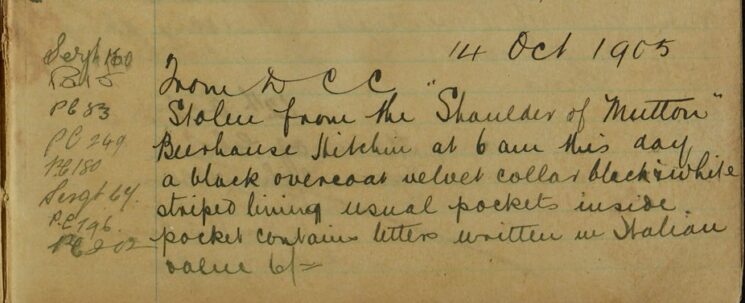 14 Oct 1905
From D C C
Stolen from the "Shoulder of Mutton"
Beerhouse Hitchin at 6 am this day
a black overcoat velvet collar black & white
striped lining usual pockets inside
pocket contains letters written in Italian
value 6/=
Sergt 160
PC 83
PC 249
PC 180
Sergt 64.
P.C 196.
PC 202